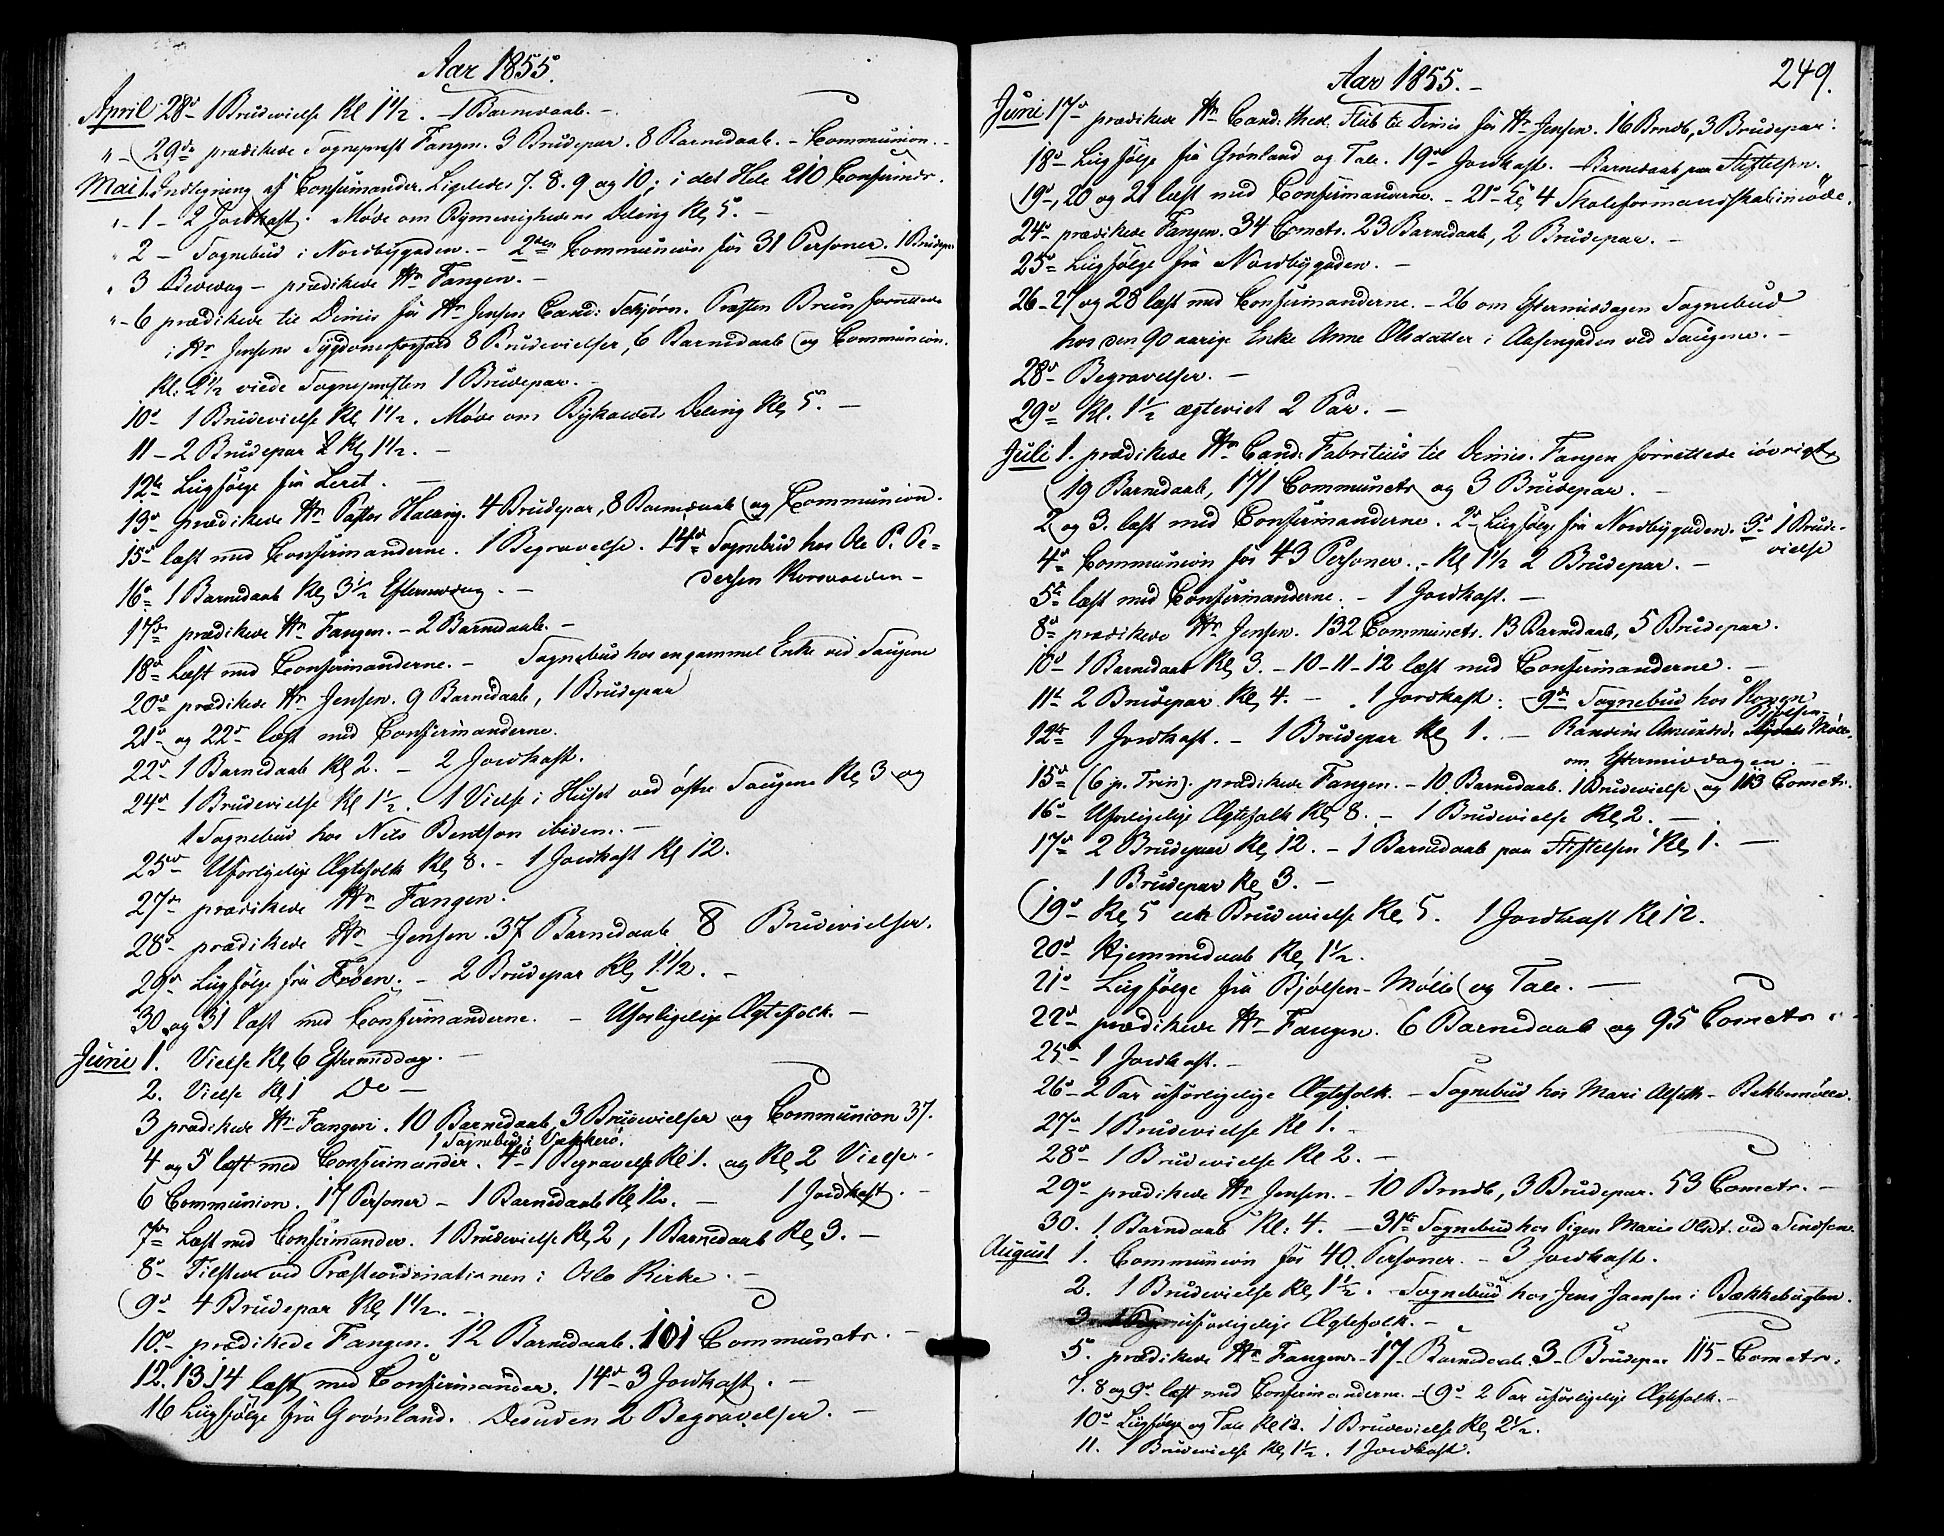 Aar 1855.
April 28de 1 Brudevielse Kl 1 1/2. – 1 Barnedaab. –
" – 29de prædikede Sognepræst Fangen. 3 Brudepar. 8 Barnedaab. – Communion. –
Mai 1. Indtegning af Confirmander. Ligeledes 7. 8. 9 og 10; i det Hele 210 Confirmdr.
" – 1 – 2 Jordkast. Møde om Deling Kl 5. –
" 2 – Sognebud i Nordbygaden. – 2den Communion for 31 Personer. 1 Brudepr
" 3 Bededag – prædikede Hr Fangen. –
" – 6 prædikede til Dimis for Hr Jensen Cand: Præsten Bruun forrettede
i Hr Jensens Sygdomsforfald 8 Brudevielser, 6 Barnedaab og Communion.
Kl. 2 1/2 viede Sognepræsten 1 Brudepar. –
10de 1 Brudevielse Kl 1 1/2. Møde om Deling Kl 5. –
11 – 2 Brudepar Kl 1 1/2. –
12te Liigfølge fra Leret. –
13de prædikede Hr Pastor Halling. 4 Brudepar, 8 Barnedaab og Communion.
15de læst med Confirmanderne. 1 Begravelse. 14de Sognebud hos Ole P. Pe=
dersen –
16de 1 Barnedaab Kl 3 1/2 Eftermiddag. –
17de prædikede Hr Fangen. – 2 Barnedaab. –
18de Læst med Confirmanderne. – Sognebud hos en gammel Enke ved Saugene
20de prædikede Hr Jensen. 9 Barnedaab, 1 Brudepar
21de og 22de læst med Confirmanderne.
22de 1 Barnedaab Kl 2. – 2 Jordkast.
24de 1 Brudevielse Kl 1 1/2. 1 Vielse i Huset ved østre Saugene Kl 3 og
1 Sognebud hos Nils Bentson ibidem. –
25de Uforligelige Ægtefolk Kl 8. – 1 Jordkast Kl 12.
27de prædikede Hr Fangen.
28de prædikede Hr Jensen. 37 Barnedaab 8 Brudevielser.
29de Liigfølge fra Frøen. – 2 Brudepar Kl 1 1/2. –
30 og 31 læst med Confirmanderne. – Uforligelige Ægtefolk. –
Junii 1. Vielse Kl 6 Eftermiddag. –
2. Vielse Kl 1 Do –
3 prædikede Hr Fangen. 10 Barnedaab, 3 Brudevielser og Communion 37.
1 Sognebud i Vækkerø.
4 og 5 læst med Confirmander. 4de 1 Begravelse Kl 1. og Kl 2 Vielse. –
6 Communion. 17 Personer – 1 Barnedaab Kl 12. – 1 Jordkast. –
7de Læst med Confirmander. 1 Brudevielse Kl 2, 1 Barnedaab Kl 3. –
8de Tilstede ved Præsteordinationen i Oslo Kirke. –
9de 4 Brudepar Kl 1 1/2. –
10de prædikede Fangen. 12 Barnedaab. 101 Communcts. –
12. 13. 14 læst med Confirmander. 14de 3 Jordkast. –
16 Liigfølge fra Grønland. Desuden 2 Begravelser. –
249.
Aar 1855. –
Juni 17de prædikede Hr Cand. theol. til Dimis for Hr Jensen. 16 Brndb, 3 Brudepar.
18de Liigfølge fra Grønland og Tale. 19de Jordkast. – Barnedaab paa Stiftelsen.
19de, 20 og 21 læst med Confirmanderne. – 21de Kl 4 Skoleformandskabsmøde.
24de prædikede Fangen. 34 Comcts. 23 Barnedaab, 2 Brudepar. –
25de Liigfølge fra Nordbygaden. –
26 – 27 og 28 læst med Confirmanderne. – 26 om Eftermiddagen Sognebud
hos den 90 aarige Enke Anne Olsdatter i Aasengaden ved Saugene. –
28de Begravelser. –
29de Kl. 1 1/2 ægteviet 2 Par. –
Juli 1. prædikede Hr Cand. Fabritius til Dimis. Fangen forrettede iøvrigt,
19 Barnedaab, 171 Communcts og 3 Brudepar. –
2 og 3. læst med Confirmanderne. 2de Liigfølge fra Nordbygaden. 3de 1 Brude-
vielse
4de Communion for 43 Personer. – Kl 1 1/2 2 Brudepar. –
5te læst med Confirmanderne. – 1 Jordkast. –
8de prædikede Hr Jensen. 132 Communcts. 13 Barnedaab, 5 Brudepar.
10de 1 Barnedaab Kl 3. – 10 – 11 – 12 læst med Confirmanderne. –
11te 2 Brudepar Kl 4. – 1 Jordkast. – 9de Sognebud hos Konen
12te 1 Jordkast. – 1 Brudepar Kl 1. – Randine Amundsd. Bjølsen-Mølle.
om Eftermiddagen. –
15de (6 p. Trin). prædikede Fangen. – 10 Barnedaab. 1 Brudevielse og 113 Comcts.
16de Uforligelige Ægtefolk Kl 8. – 1 Brudevielse Kl 2. –
17de 2 Brudepar Kl 12. – 1 Barnedaab paa Stiftelsen Kl 1. –
1 Brudepar Kl 3. –
19de Kl 5 Brudevielse Kl 5. 1 Jordkast Kl 12.
20de Hjemmedaab Kl 1 1/2.
21de Liigfølge fra Bjølsen-Mølle og Tale. –
22de prædikede Hr Fangen. 6 Barnedaab og 95 Comcts. –
25de 1 Jordkast. –
26de 2 Par uforligelige Ægtefolk. – Sognebud hos Mari –
27de 1 Brudevielse Kl 1. –
28de 1 Brudevielse Kl 2. –
29de prædikede Hr Jensen. – 10 Brndb, 3 Brudepar. 53 Comcts. –
30. 1 Barndaab Kl: 4. – 31te Sognebud hos Pigen Maria Olsdt. ved
August 1. Communion for 40 Personer. – 3 Jordkast.
2. 1 Brudevielse Kl 1 1/2. Sognebud hos Jens Jensen i Bækkebugten.
3. uforligelige Ægtefolk. –
5. prædikede Hr Fangen. – 17 – Barnedaab. 3 – Brudepar 115 – Comcts.
7. 8 og 9de læst med Confirmanderne. – 9de 2 Par uforligelige Ægtefolk. –
10de Liigfølge og Tale Kl 12. 1 Brudevielse Kl 2 1/2.
11. 1 Brudevielse Kl 1 1/2. 1 Jordkast.